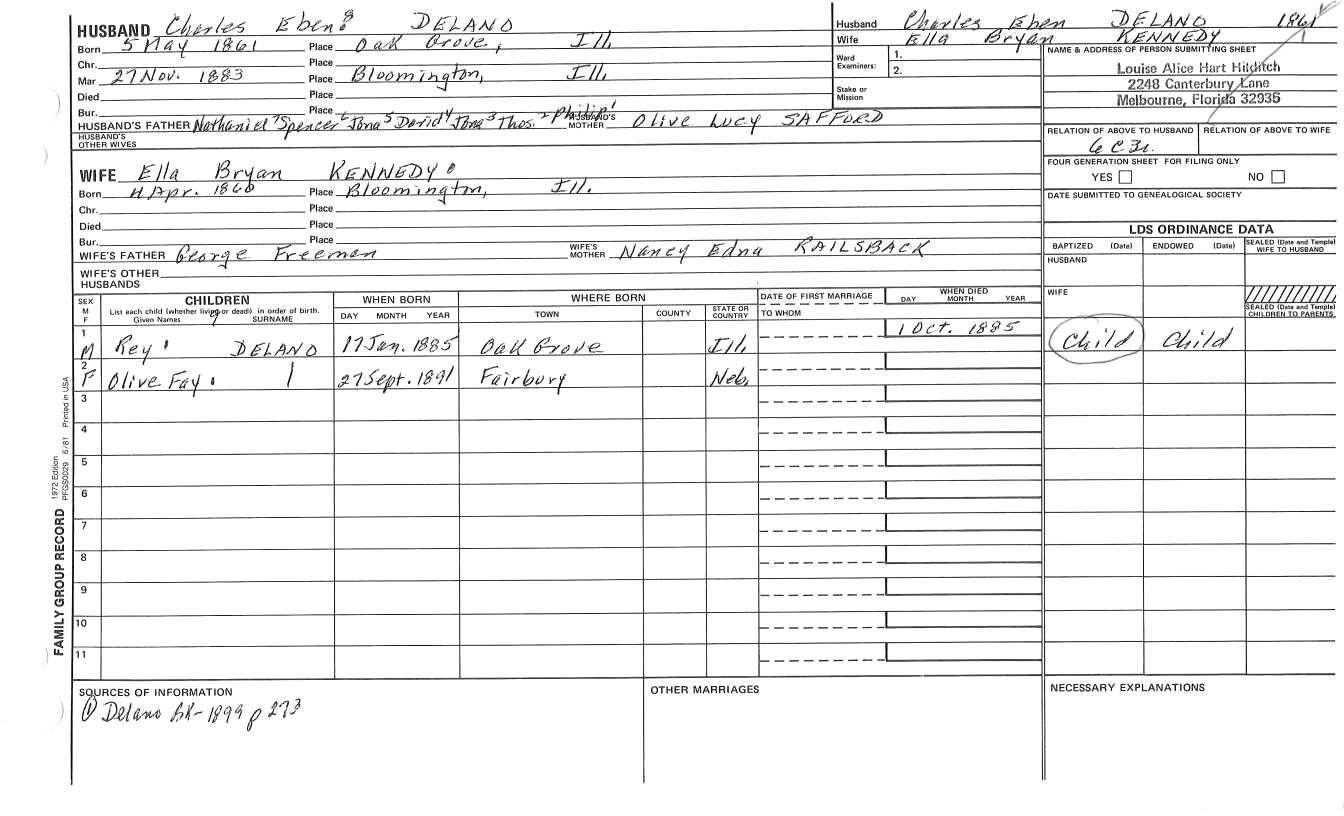 HUSBAND Charles Eben 8 DELANO
Born 5 May 1861 Place Oak Grove, Ill.
Chr. Place
Mar 27 Nov. 1883 Place Bloomington, Ill.
Died Place
Bur. Place
HUSBAND'S FATHER Nathaniel 7 Spencer 6 Jona 5 David 4 Jona 3 Thos. 2 Philip 1 HUSBAND'S MOTHER Olive Lucy SAFFORD
HUSBAND'S OTHER WIVES
WIFE Ella Bryan KENNEDY
Born 4 Apr. 1860 Place Bloomington, Ill.
Chr. Place
Died Place
Bur. Place
WIFE'S FATHER George Freeman WIFE'S MOTHER Nancy Edna RAILSBACK
WIFE'S OTHER HUSBANDS
Husband Charles Eben DELANO 1861
Wife Ella Bryan KENNEDY
Ward Examiners: 1.
2.
Stake or Mission
NAME & ADDRESS OF PERSON SUBMITTING SHEET
Louise Alice Hart Hilditch
2248 Canterbury Lane
Melbourne, Florida 32935
RELATION OF ABOVE TO HUSBAND RELATION OF ABOVE TO WIFE
6C3r.
FOUR GENERATION SHEET FOR FILING ONLY
YES NO
DATE SUBMITTED TO GENEALOGICAL SOCIETY
LDS ORDINANCE DATA
BAPTIZED (Date) ENDOWED (Date) SEALED (Date and Temple) WIFE TO HUSBAND
HUSBAND
WIFE
SEALED (Date and Temple) CHILDREN TO PARENTS
SEX M F CHILDREN WHEN BORN WHERE BORN DATE OF FIRST MARRIAGE WHEN DIED
List each child (whether living or dead) in order of birth.
Given Names 9 SURNAME DAY MONTH YEAR TOWN COUNTY STATE OR COUNTRY TO WHOM DAY MONTH YEAR
1 M Rey DELANO 17 Jan. 1885 Oak Grove Ill. 1 Oct. 1885 Child Child
2 F Olive Fay 27 Sept. 1891 Fairbury Neb.
3
4
5
6
7
8
9
10
11
SOURCES OF INFORMATION
① Delano bk-1899 p 273
OTHER MARRIAGES
NECESSARY EXPLANATIONS
FAMILY GROUP RECORD 1972 Edition PFGS0029 6/81 Printed in USA